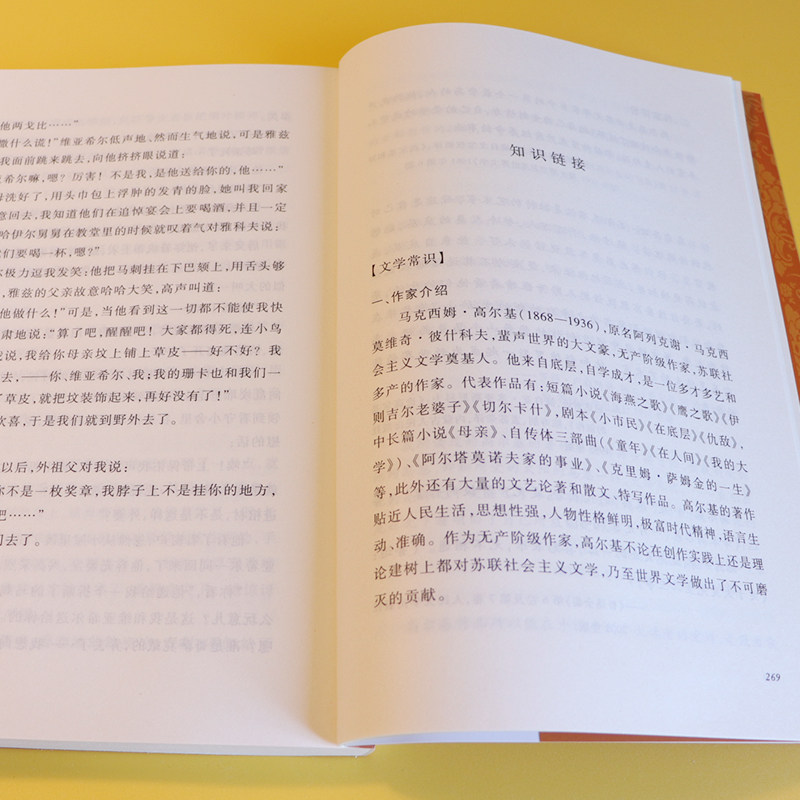 他两戈比……”
撒什么谎！”维亚希尔低声地、然而生气地说，可是雅兹
我面前跳来跳去，向他挤挤眼说道：
亚希尔嘛，嗯？厉害！不是我，是他送给你的，他……”
母洗好了，用头巾包上浮肿的发青的脸，她叫我回家
意回去，我知道他们在追悼宴会上要喝酒，并且一定
哈伊尔舅舅在教堂里的时候就叹着气对雅科夫说：
我们要喝一杯，嗯？”
极力逗我发笑：他把马刺挂在下巴颏上，用舌头够
，雅兹的父亲故意哈哈大笑，高声叫道：
他做什么！”可是，当他看到这一切都不能使我快
肃地说：“算了吧，醒醒吧！大家都得死，连小鸟
说，我给你母亲坟上铺上草皮——好不好？我
去，——你、维亚希尔、我；我的珊卡也和我们一
了草皮，就把坟装饰起来，再好没有了！”
欢喜，于是我们就到野外去了。
以后，外祖父对我说：
你不是一枚奖章，我脖子上不是挂你的地方，
吧……”
间去了。
知识链接
【文学常识】
一、作家介绍
马克西姆·高尔基（1868—1936），原名阿列克谢·马克西
莫维奇·彼什科夫，蜚声世界的大文豪，无产阶级作家，苏联社
会主义文学奠基人。他来自底层，自学成才，是一位多才多艺和
多产的作家。代表作品有：短篇小说《海燕之歌》《鹰之歌》《伊
则吉尔老婆子》《切尔卡什》，剧本《小市民》《在底层》《仇敌》，
中长篇小说《母亲》、自传体三部曲（《童年》《在人间》《我的大
学》）、《阿尔塔莫诺夫家的事业》、《克里姆·萨姆金的一生》
等，此外还有大量的文艺论著和散文、特写作品。高尔基的著作
贴近人民生活，思想性强，人物性格鲜明，极富时代精神，语言生
动、准确。作为无产阶级作家，高尔基不论在创作实践上还是理
论建树上都对苏联社会主义文学，乃至世界文学做出了不可磨
灭的贡献。
269